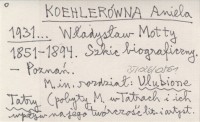 KOEHLERÓWNA Aniela
1931... Władysław Motty
1851-1894. Szkic biograficzny.
- Poznań.
M.in. rozdział: Ulubione
Tatry. (Pobyty M. w Tatrach i ich
wpływ na jego twórczość lit. i artyst.